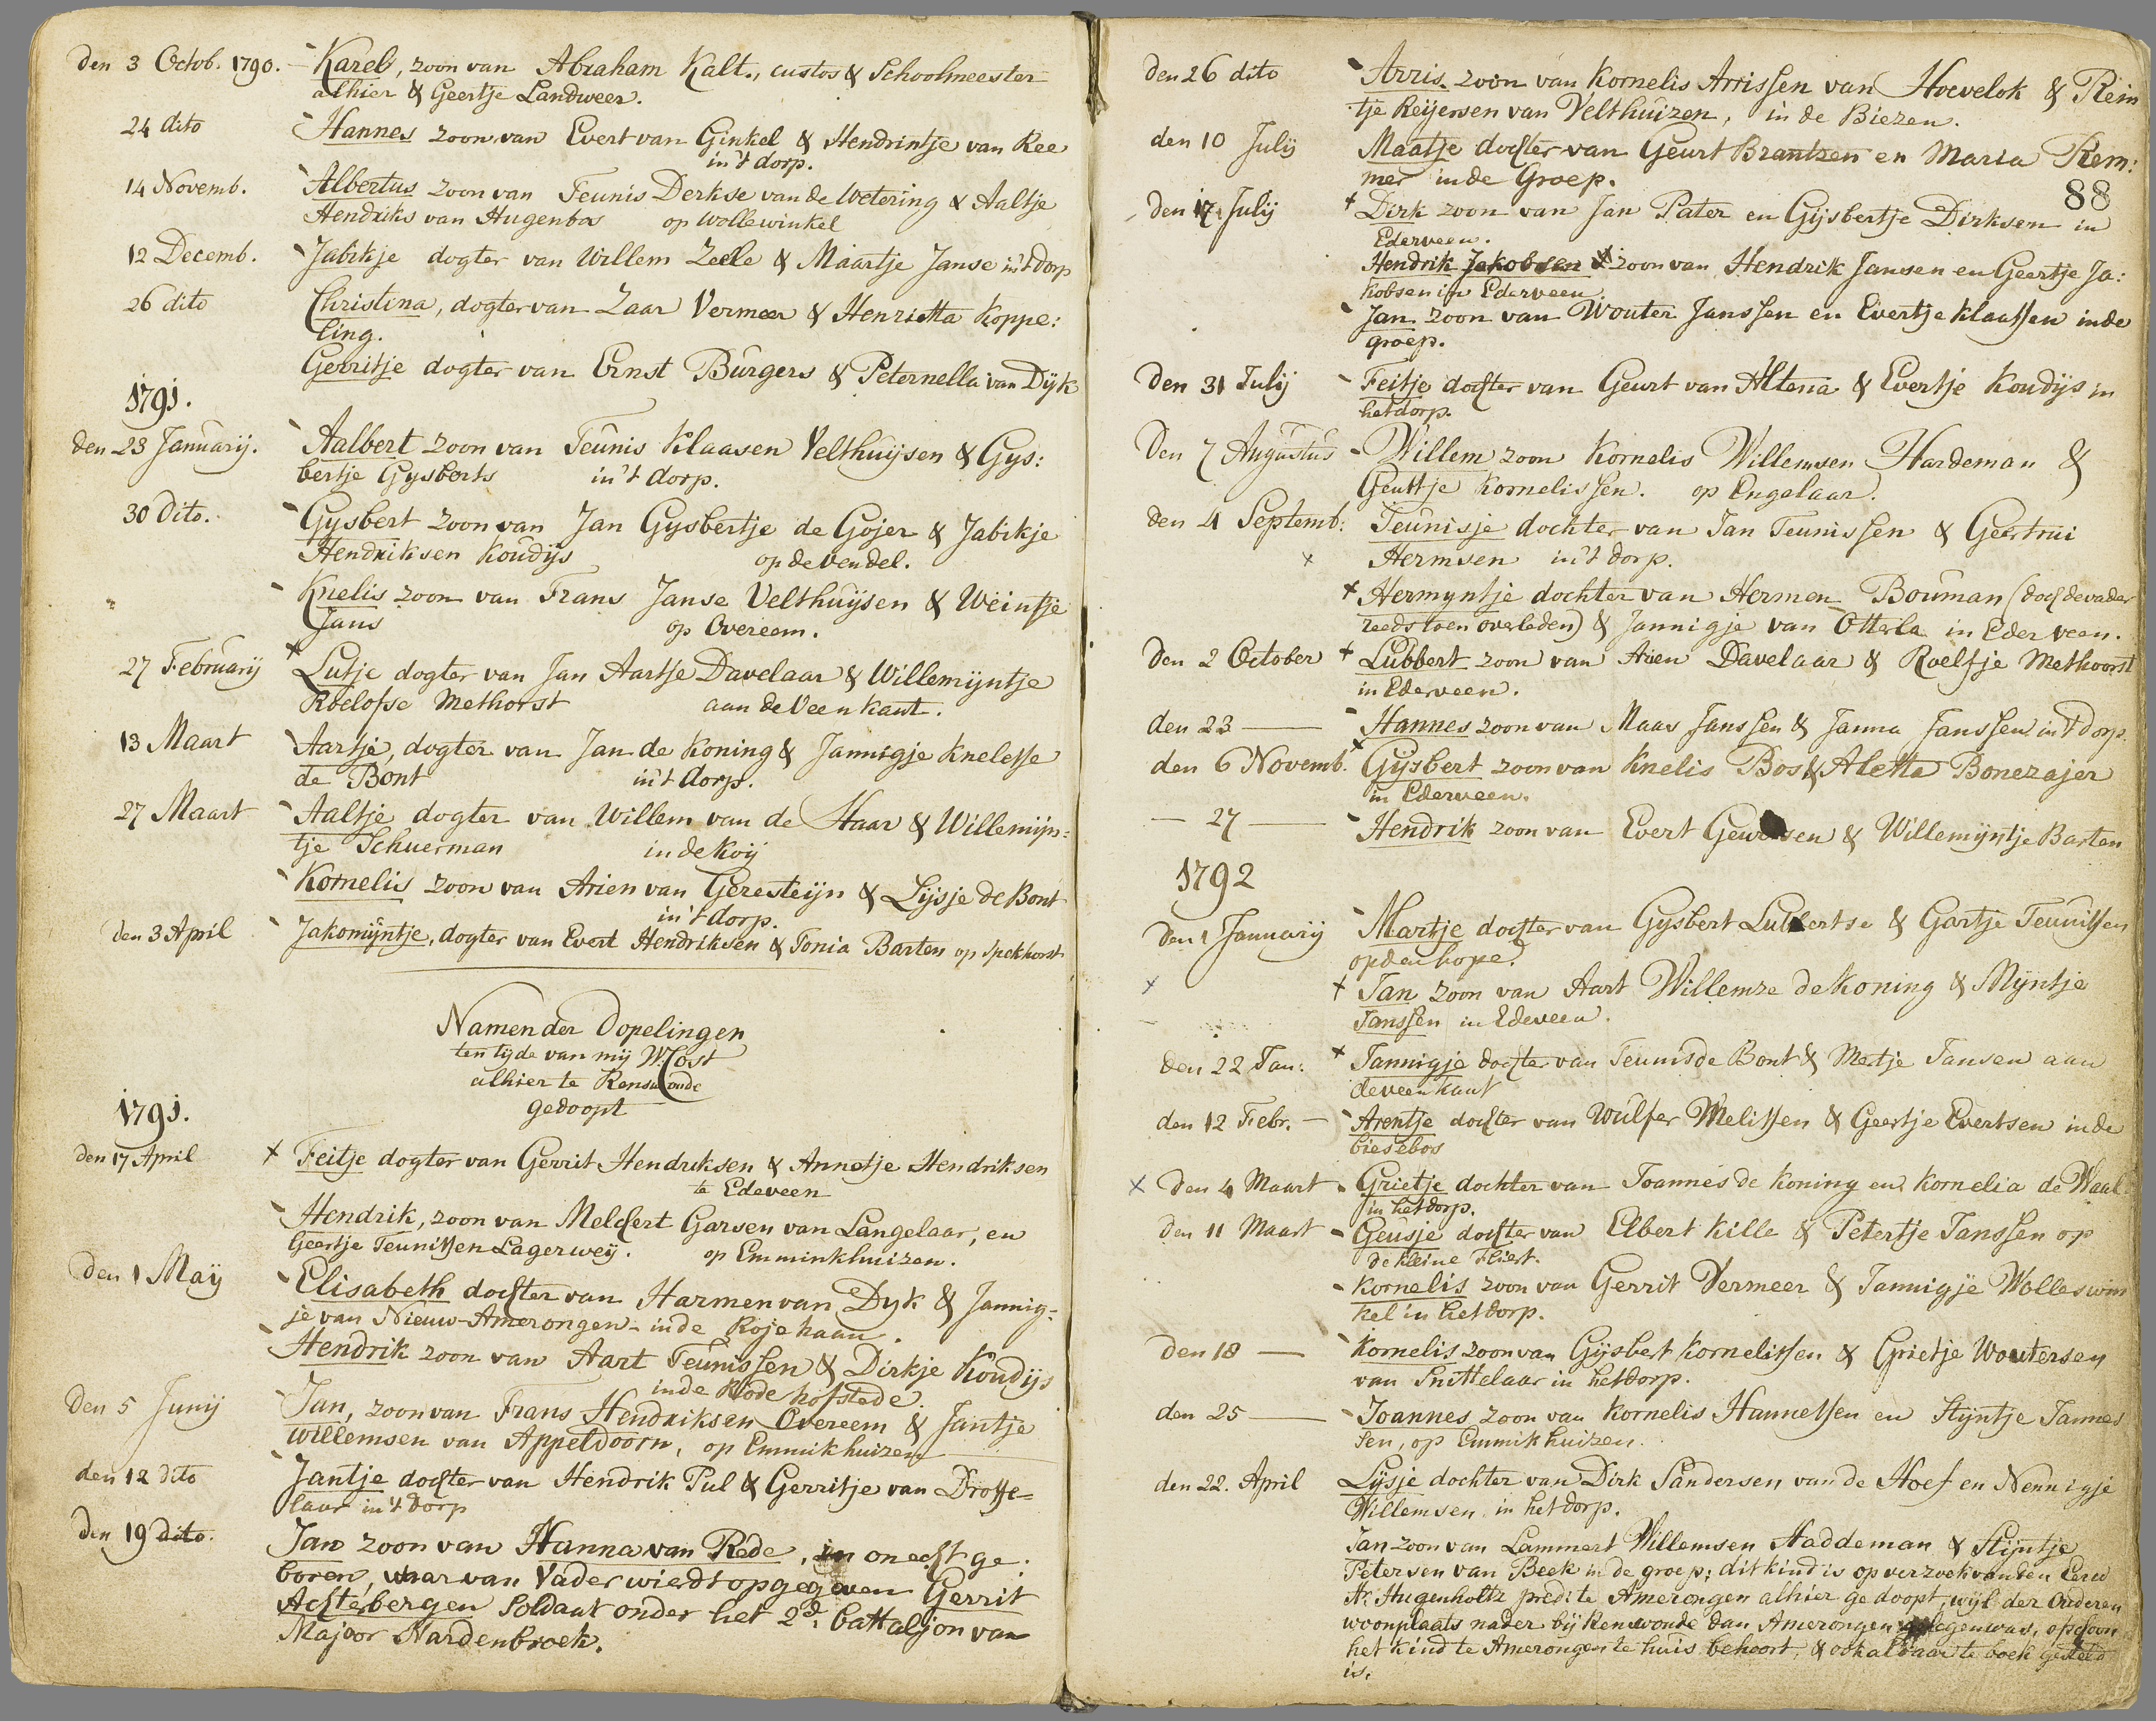 den 3 Octob. 1790. Karel, zoon van Abraham Kalt., custos & Schoolmeester
alhier & Geertje Landweer.
24 dito Hannes zoon van Evert van Ginkel & Hendrintje van Ree
in 't dorp.
14 Novemb. Albertus zoon van Teunis Derkse van de Wetering & Aaltje
Hendriks van Hugenbos op Wollewinkel
12 Decemb. Jabikje dogter van Willem Zeele & Maartje Janse in 't dorp
26 dito Christina, dogter van Zaar Vermeer & Henrietta Koppe:
ling.
Gerritje dogter van Ernst Burgers & Peternella van Dijk
1791.
den 23 Januarij. Aalbert zoon van Teunis Klaasen Velthuijsen & Gys:
bertje Gysberts in 't dorp.
30 Dito. Gysbert zoon van Jan Gysbertje de Gojer & Jabikje
Hendriksen Koudijs op de Vendel.
Knelis zoon van Frans Janse Velthuijsen & Weintje
Jans op Overeem.
27 Februarij Lutje dogter van Jan Aartse Davelaar & Willemijntje
Roelofse Methorst aan de Veenkant.
13 Maart Aartje, dogter van Jan de Koning & Jannigje Knelesse
de Bont in 't dorp.
27 Maart Aaltje dogter van Willem van de Haar & Willemijn:
tje Schuerman in de Koij
Kornelis zoon van Arien van Geresteijn & Lijsje de Bont
in 't dorp.
den 3 April Jakomijntje, dogter van Evert Hendriksen & Tonia Barten op Spekhorst
Namen der Dopelingen
ten tijde van mij W. Cost
alhier te Renswoude
gedoopt
1791.
den 17 April Feitje dogter van Gerrit Hendriksen & Annetje Hendriksen
te Edeveen
Hendrik, zoon van Melchert Garsen van Langelaar, en
Geertje Teunissen Lagerweij. op Emminkhuizen.
den 1 Maij Elisabeth dochter van Harmen van Dyk & Jannig-
je van Nieuw-Amerongen in de Rojehaan.
Hendrik zoon van Aart Teunissen & Dirkje Koudijs
in de Rode hofstede.
den 5 Junij Jan, zoon van Frans Hendriksen Overeem & Jantje
Willemsen van Appeldoorn, op Emmikhuizen
den 12 dito Jantje dochter van Hendrik Pul & Gerritje van Drosse=
laar in 't dorp
den 19 dito. Jan zoon van Hanna van Rede, in onecht ge:
boren, waar van Vader wierdt opgegeven Gerrit
Achterbergen Soldaat onder het 2d. battaljon van
Majoor Hardenbroek.
den 26 dito Arris zoon van Kornelis Arrissen van Hoevelok & Rein
tje Reijersen van Velthuizen, in de Biezen.
den 10 Julij Maatje dochter van Geurt Brantzen en Maria Rem:
mer in de Groep.
88
den 17 Julij Dirk zoon van Jan Pater en Gijsbertje Dirksen in
Ederveen.
Hendrik Jakobsen zoon van Hendrik Jansen en Geertje Ja:
kobsen in Ederveen
Jan zoon van Wouter Janssen en Evertje Klaassen in de
groep.
Den 31 Julij Feitje dochter van Geurt van Altena & Evertje Koudijs in
het dorp.
Den 7 Augustus Willem zoon Kornelis Willemsen Hardeman &
Geurtje Kornelissen. op Engelaar.
den 4 Septemb: Teunisje dochter van Jan Teunissen & Geertrui
Hermsen in 't dorp.
Hermyntje dochter van Hermen Bouman (doch de vader
reeds toen overleden) & Jannigje van Otterla in Ederveen.
den 2 October Lubbert zoon van Arien Davelaar & Roelfje Methorst
in Ederveen.
den 23 Hannes zoon van Maas Janssen & Janna Janssen in 't dorp.
den 6 Novemb. Gijsbert zoon van Knelis Bos & Aletta Bonezajer
in Ederveen.
27 Hendrik zoon van Evert & Willemijntje Barten
1792
Den 1 Januarij Martje dochter van Gysbert Lubbertse & Gartje Teunissen
op den hope.
Jan zoon van Aart Willemze de Koning & Mijntje
Janssen in Edeveen.
den 22 Jan: Jannigje dochter van Teunis de Bont & Metje Jansen aan
de veenkant
den 12 Febr. Arentje dochter van Wulfer Melissen & Geertje Evertsen in de
biesebos
Den 4 Maart Grietje dochter van Joannes de Koning en Kornelia de Waal
in het dorp.
den 11 Maart Geusje dochter van Elbert Kille & Petertje Janssen op
de kleine Fliert.
Kornelis zoon van Gerrit Vermeer & Jannigje Wolleswin
kel in het dorp.
Den 18 Kornelis zoon van Gijsbert Kornelissen & Grietje Woutersen
van Snittelaar in het dorp.
den 25 Joannes zoon van Kornelis Hannessen en Stijntje Jannes
sen, op Emmikhuizen.
den 22. April Lijsje dochter van Dirk Sandersen van de Hoef en Nennigje
Willemsen in het dorp.
Jan zoon van Lammert Willemsen Haddeman & Stijntje
Petersen van Beek in de groep; dit kind is op verzoek van den Eerw
Hr. Hugenholtz predt. te Amerongen alhier gedoopt, wijl der Ouderen
woonplaats nader bij Renswoude dan Amerongen gelegen was, ofschoon
het kind te Amerongen te huis behoort, & ook aldaar te boek gesteld
is.